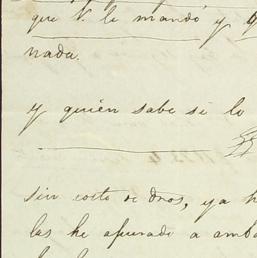 que V. le mandó y
nada.
y quién sabe si lo
sin costo de dros, ya h
las he apurado a amb